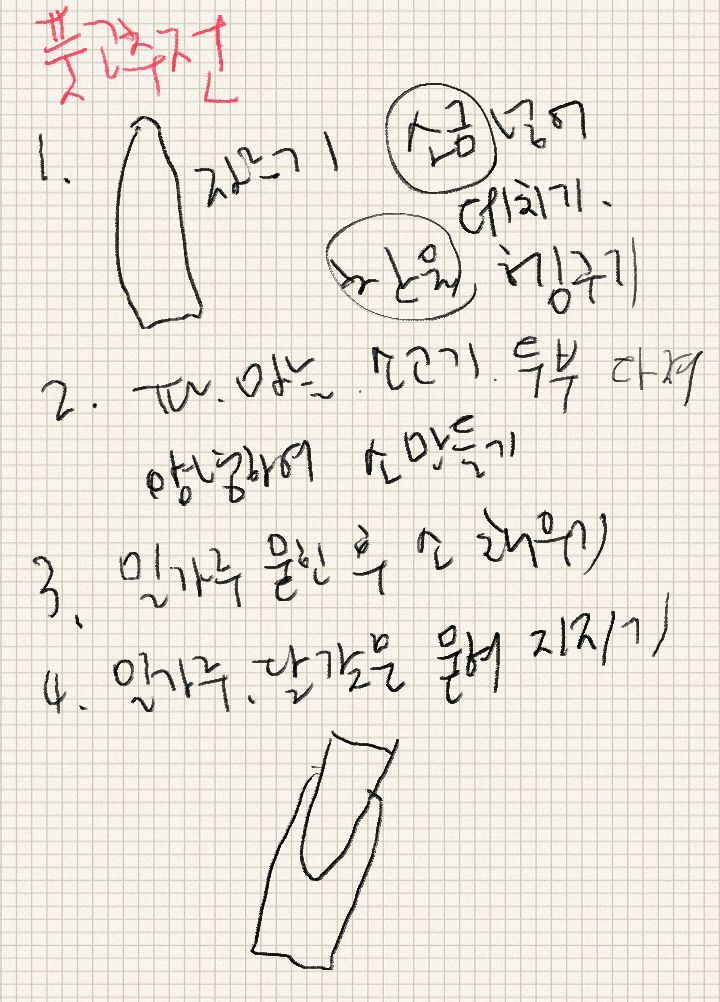 풋고추전
1. 자르기 소금 넣어
데치기.
찬물 헹구기
2. 파. 마늘. 소고기. 두부 다져
양념하여 소 만들기
3. 밀가루 묻힌 후 소 채우기
4. 밀가루. 달걀물 묻혀 지지기